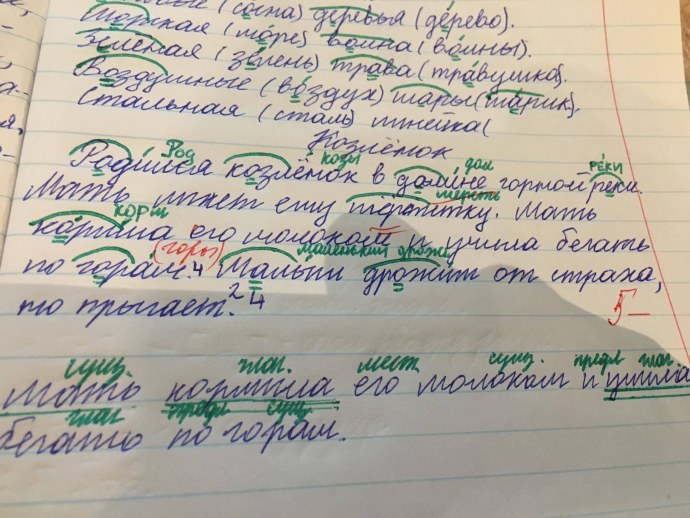 (сосна) деревья (дерево).
Морская (море) волна (волны).
Зелёная (зелень) трава (травушка).
Воздушные (воздух) шары (шарик).
Стальная (сталь) линейка (
Козлёнок
Род козы дом РЕКИ
Родился козлёнок в долине горной реки.
шерсть
Мать лижет ему шёрстку. Мать
корм
кормила его молоком и учила бегать
(горы) маленький дрожь
по горам. 4 Малыш дрожит от страха,
но прыгает. 2 4
5-
сущ. глаг. мест. сущ. предл глаг.
Мать кормила его молоком и учила
глаг. предл сущ.
бегать по горам.